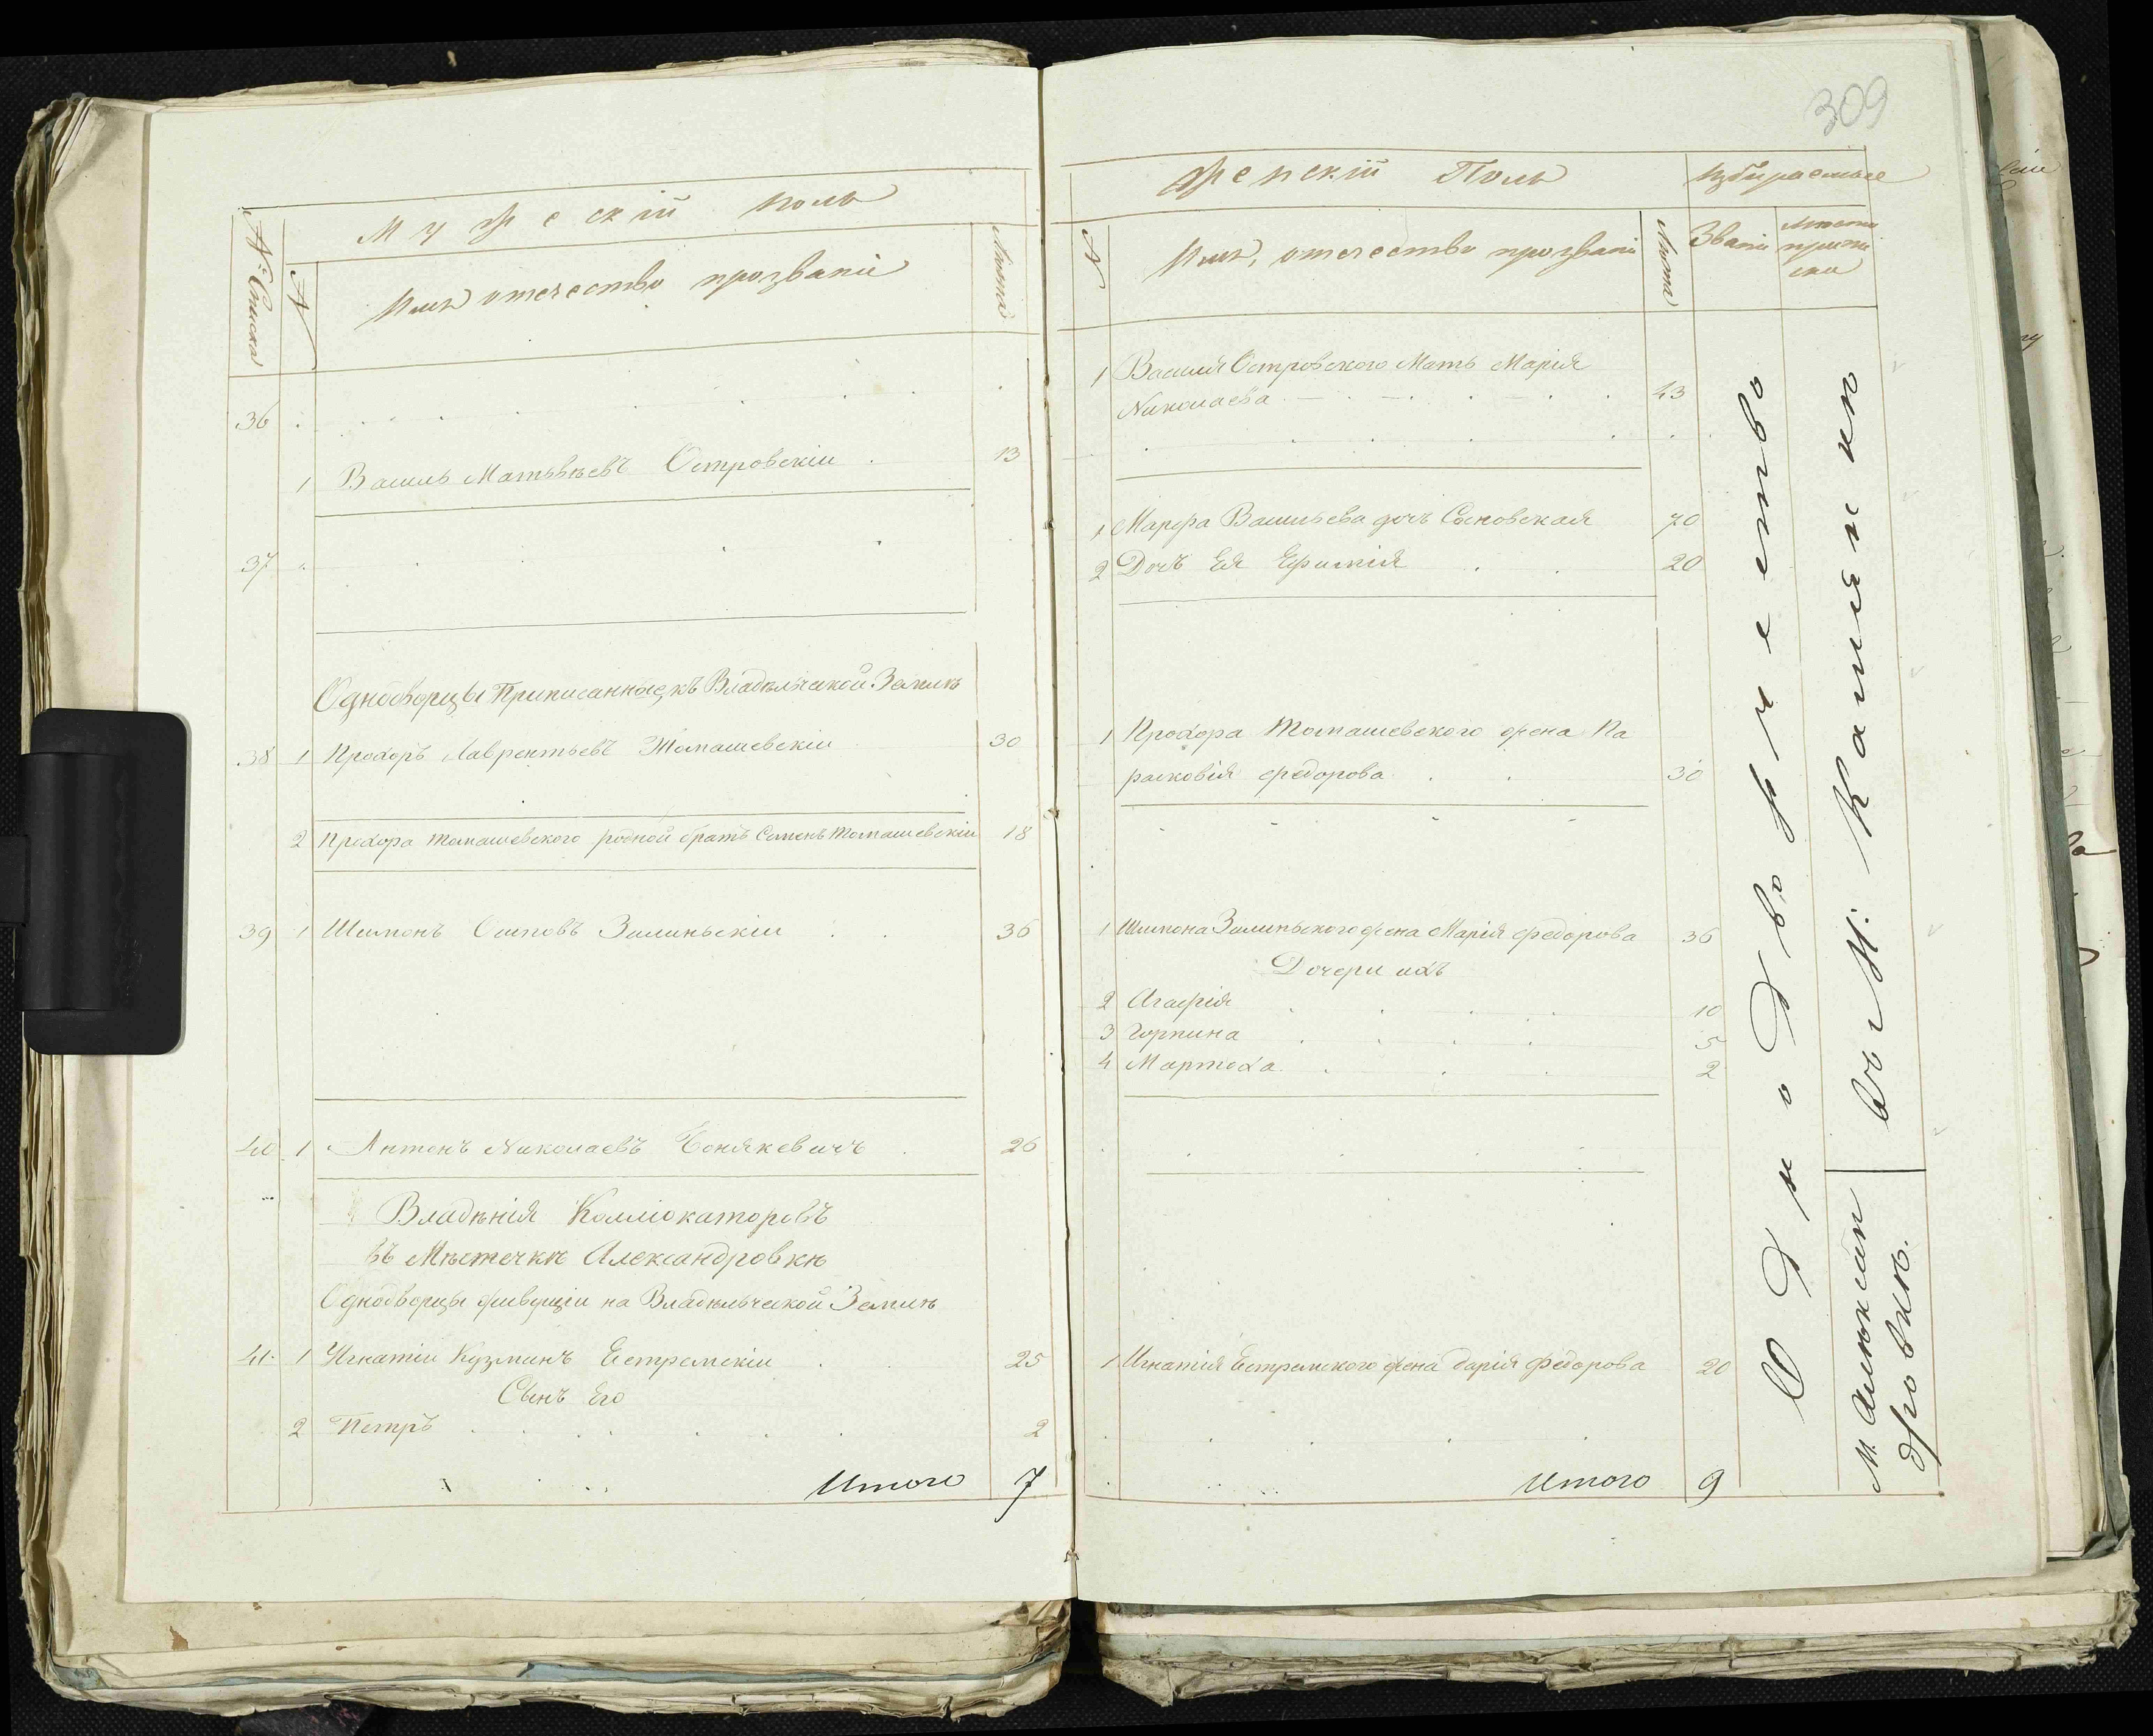 Мужескій полъ
№ Списка
№
Имя отечество прозваніе
Лѣта
36
1 Василь Матвѣевъ Островскіи 13
37
Однодворцы Приписанные къ Владѣльческой Землѣ
38 1 Прохоръ Лаврентьевъ Томашевскіи 30
2 Прохора Томашевского родной братъ Семенъ Томашевскіи 18
39 1 Шимонъ Осиповъ Залиньскіи 36
40 1 Антонъ Николаевъ 26
Владѣнія Коллiокаторовъ
въ Мѣстечкѣ Александровкѣ
Однодворцы живущіи на Владѣльческой Землѣ
41 1 Игнатіи Кузминъ Естремскіи 25
Сынъ Его
2 Петръ 2
Итого 7
309
Женскій Полъ
Избираемые
№
Имя, отечество прозваніе
Лѣта
Званіе
Место
припи
ски
1 Василія Островского Мать Марія
Николаева 43
1 Марфа Васильева дочь Сосновская 70
2 Дочь Ея Ефимія 20
1 Прохора Томашевского жена Па
расковія Федорова 30
1 Шимона Залиньского жена Марія Федорова 36
Дочери ихъ
2 Агафія 10
3 Горпина 5
4 Мартоха 2
1 Игнатія Естремского жена Дарія Федорова 20
Итого 9
Однодворчество
въ М: Каменкѣ
М. Алексан
дровкѣ.